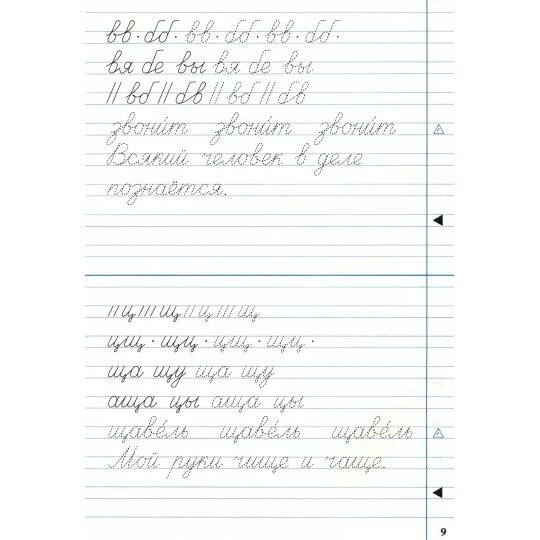 вв · бб · вв · бб · вв · бб ·
вя бе вы вя бе вы
// вб // бв // вб // бв
звони́т звони́т звони́т
Всякий человек в деле
познаётся.
// ц /// щ // ц /// щ
цщ · щц · цщ · щц ·
ща щу ща щу
аща цы аща цы
щаве́ль щаве́ль щаве́ль
Мой руки чище и чаще.
9